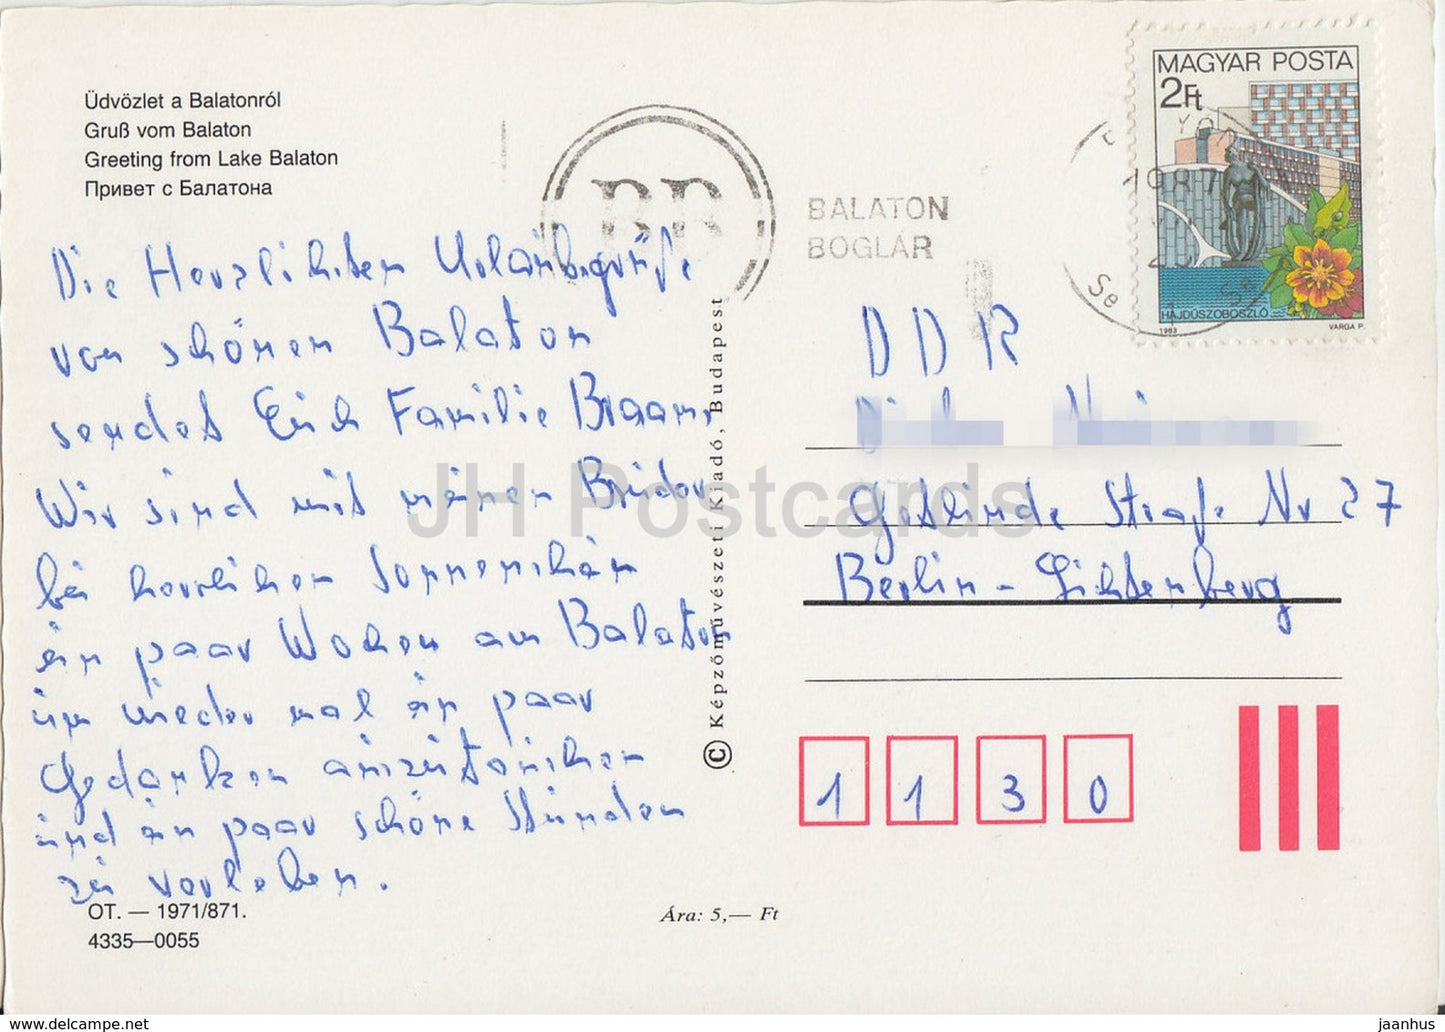 Üdvözlet a Balatonról
Gruß vom Balaton
Greeting from Lake Balaton
Привет с Балатона
MAGYAR POSTA
2Ft
HAJDÚSZOBOSZLÓ
1983
VARGA P.
BB
BALATON
BOGLÁR
1987
Die Herzlichsten Urlaubsgrüße
von schönen Balaton
sendet Euch Familie Braam,
Wir sind mit meinen Brüder
bei herrlichen Sonnenschein
ein paar Wochen am Balaton
um wieder mal ein paar
Gedanken auszutauschen
und ein paar schöne Stunden
zu verleben.
OT. — 1971/871.
4335—0055
Ára: 5,— Ft
© Képzőművészeti Kiadó, Budapest
DDR
Gotlinde Straße Nr 27
Berlin - Lichtenberg
1 1 3 0
JH Postcards
www.delcampe.net
jaanhus